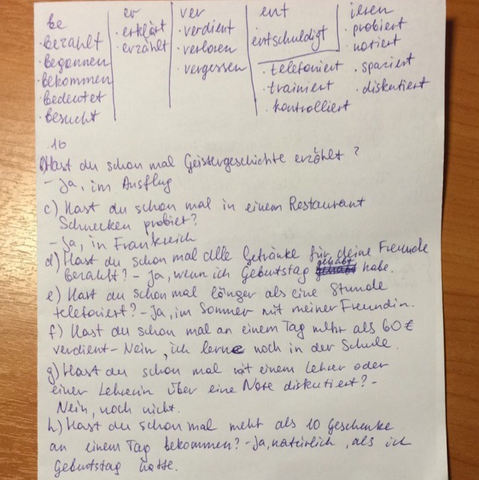 be er ver ent ieren
· bezahlt · erklärt · verdient entschuldigt · probiert
· begonnen · erzählt · verloren · telefoniert · notiert
· bekommen · vergessen · trainiert · spaziert
· bedeutet · kontrolliert · diskutiert
· besucht
16
b) Hast du schon mal Geistergeschichte erzählt ?
- Ja, im Ausflug
c) Hast du schon mal in einem Restaurant
Schnecken probiert?
- Ja, in Frankreich
d) Hast du schon mal alle Getränke für deine Freunde
bezahlt? - Ja, wenn ich Geburtstag gehabt habe.
e) Hast du schon mal länger als eine Stunde
telefoniert? - Ja, im Sommer mit meiner Freundin.
f) Hast du schon mal an einem Tag mehr als 60 €
verdient - Nein, ich lerne noch in der Schule.
g) Hast du schon mal mit einem Lehrer oder
einer Lehrerin über eine Note diskutiert? -
Nein, noch nicht.
h) Hast du schon mal mehr als 10 Geschenke
an einem Tag bekommen? - Ja, natürlich, als ich
Geburtstag hatte.